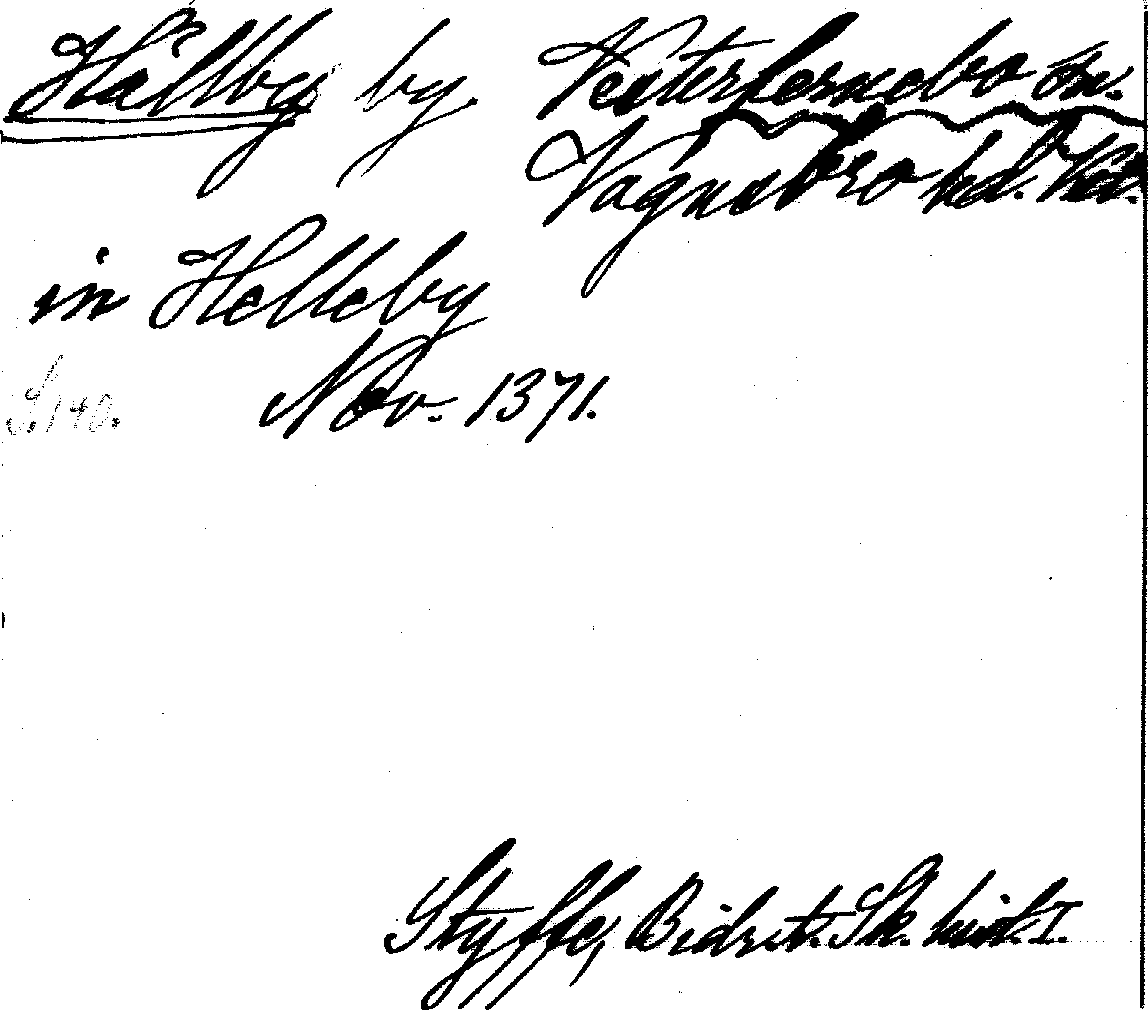 Hållby by. Vesterfernebo sn.
Vagnsbro hd. Vstm.
in Helleby
S. 140. Nov. 1371.
Styffe, Bidr. t. Sk. hist. I.